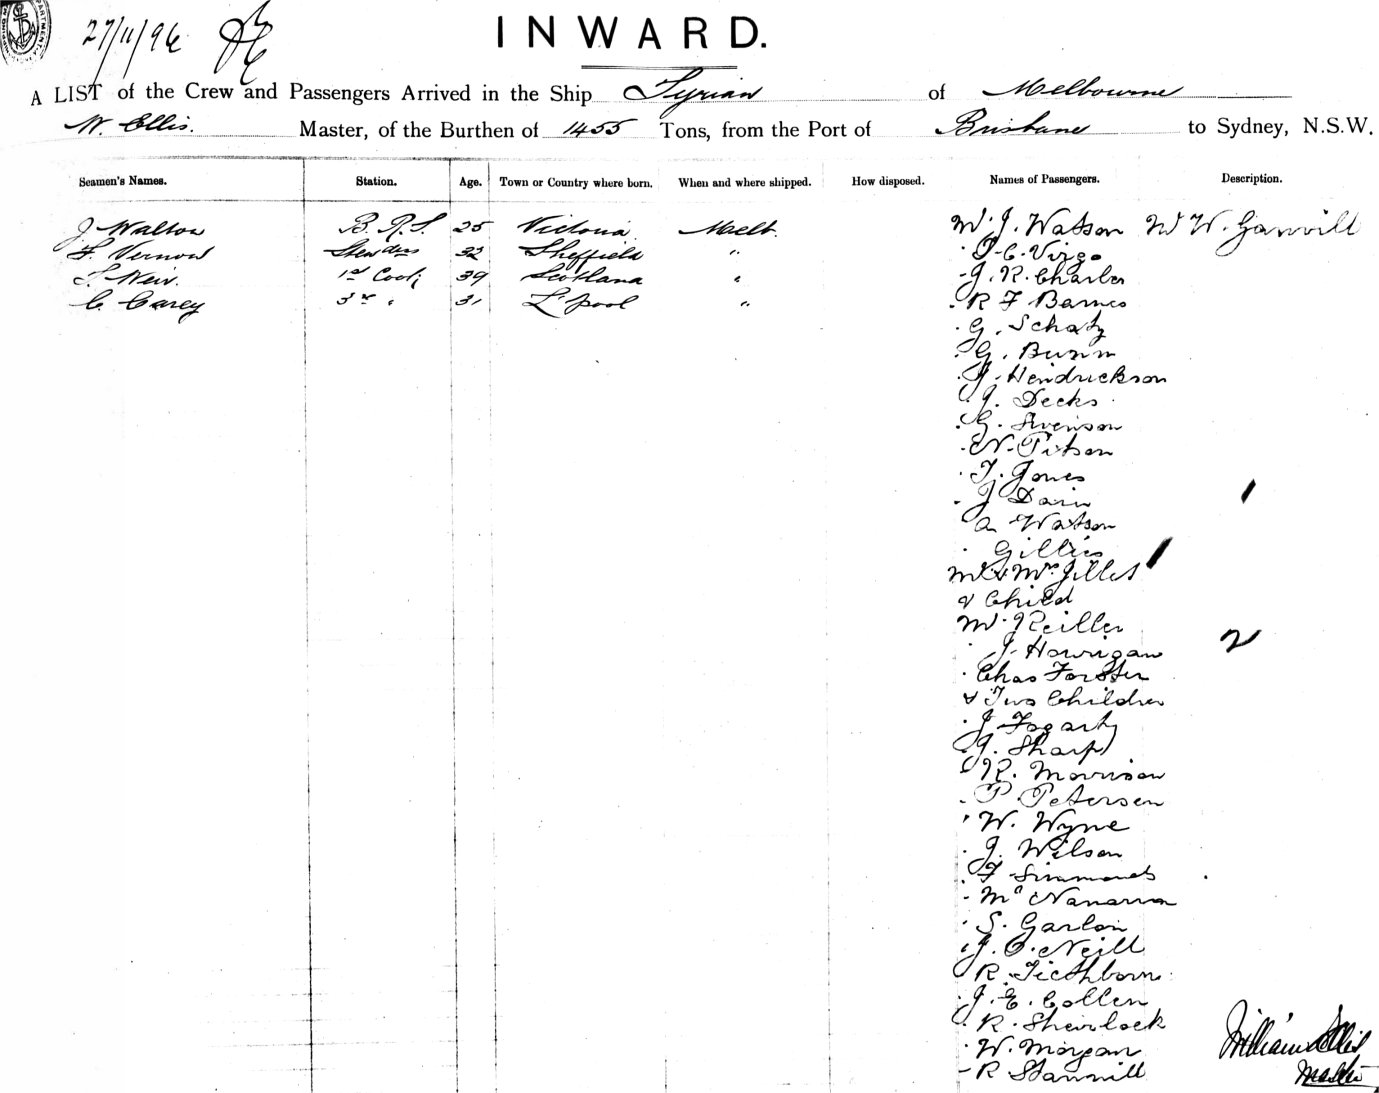 27/11/96
INWARD.
A LIST of the Crew and Passengers Arrived in the Ship Tyrian of Melbourne
W. Ellis. Master, of the Burthen of 1455 Tons, from the Port of Brisbane to Sydney, N.S.W.
Seamen's Names. Station. Age. Town or Country where born. When and where shipped. How disposed. Names of Passengers. Description.
J Walton B. R. S. 25 Victoria Melb. Mr J. Watson Mr W. Ganvill
F. Vernon 32 Sheffield " T. C. Virgo
T. Neir. 1st Cook 39 Scotland " J. R. Charles
C. Carey 3rd " 31 L'pool " R F Barnes
G. Schatz
G. Bunn
J. Hendrickson
J. Decks
G. Svenson
N. Pitson
T. Jones
J Dain
A Watson 1
Gillies
Mr & Mrs Gillet 1
& Child
Mr J Reiller
J. Howrigan 2
Chas Forster
& Two Children
J Fogarty
J. Sharp
R. Morrison
P. Petersen
W. Wyne
J. Wilson
F Simmonds
Mc Namarra
S. Garlon
J. O. Neill
R. Ticthborn
J. E. Collen
R. Sherlock
W. Morgan William Ellis
R Stanvill Master